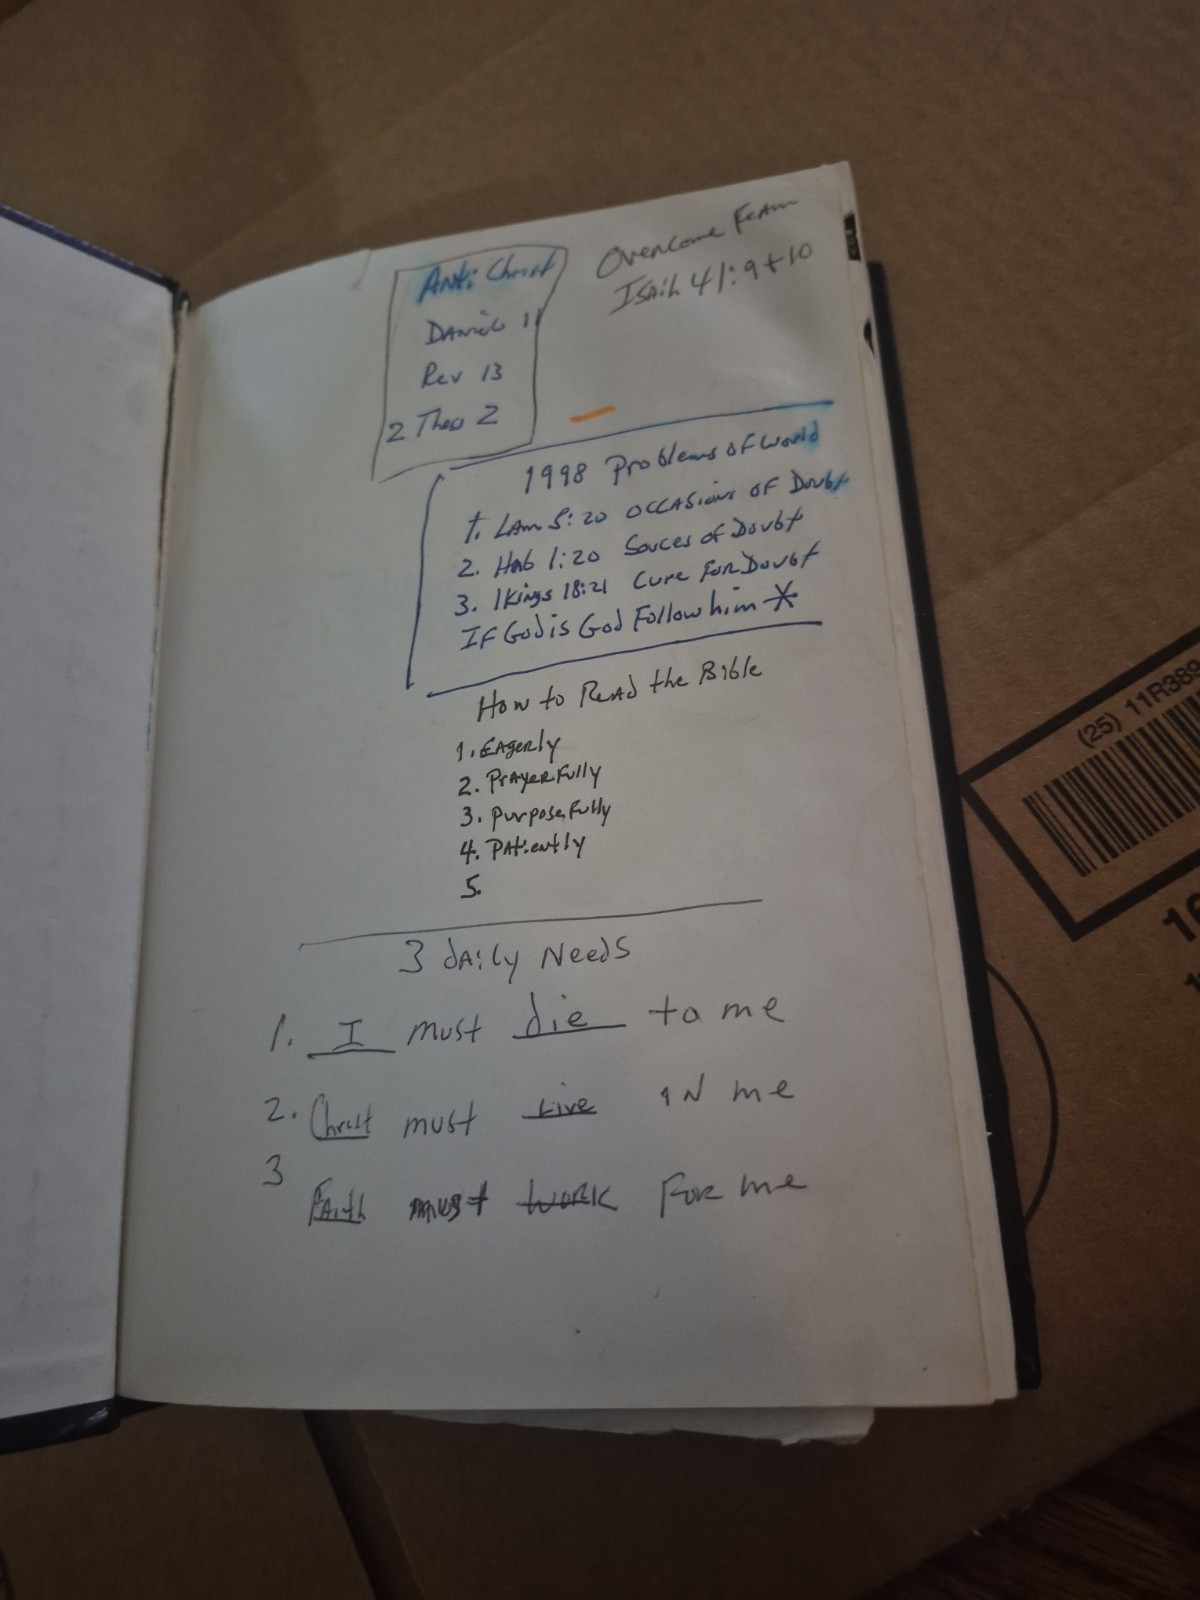 Anti Christ
Daniel 11
Rev 13
2 Thess 2
Overcome Fear
Isaih 41:9+10
1998 Problems of World
1. Lam 5:20 Occasions of Doubt
2. Hab 1:20 Souces of Doubt
3. 1 Kings 18:21 Cure For Doubt
If God is God Follow him *
How to Read the Bible
1. Eagerly
2. Prayerfully
3. Purposefully
4. Patiently
5.
3 daily Needs
1. I must die to me
2. Christ must Live in me
3
Faith must work For me
(25) 11R389